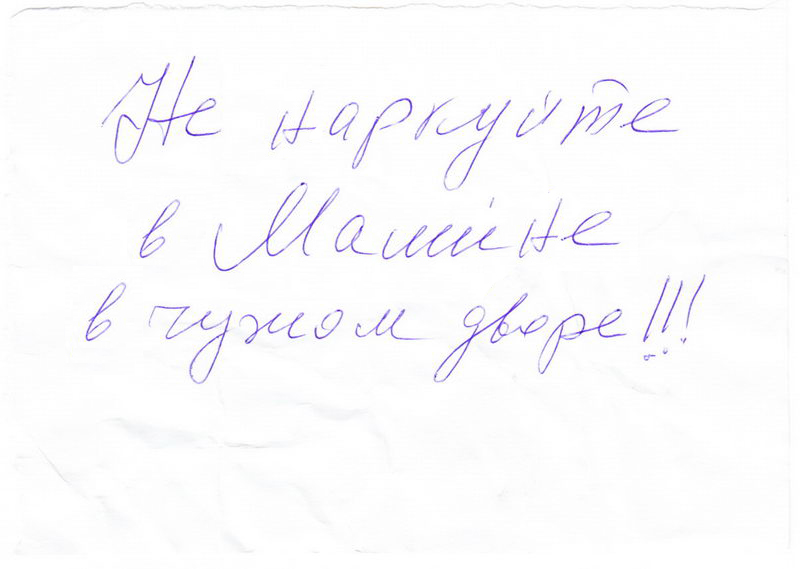 Не наркуйте
в Машине
в чужом дворе!!!